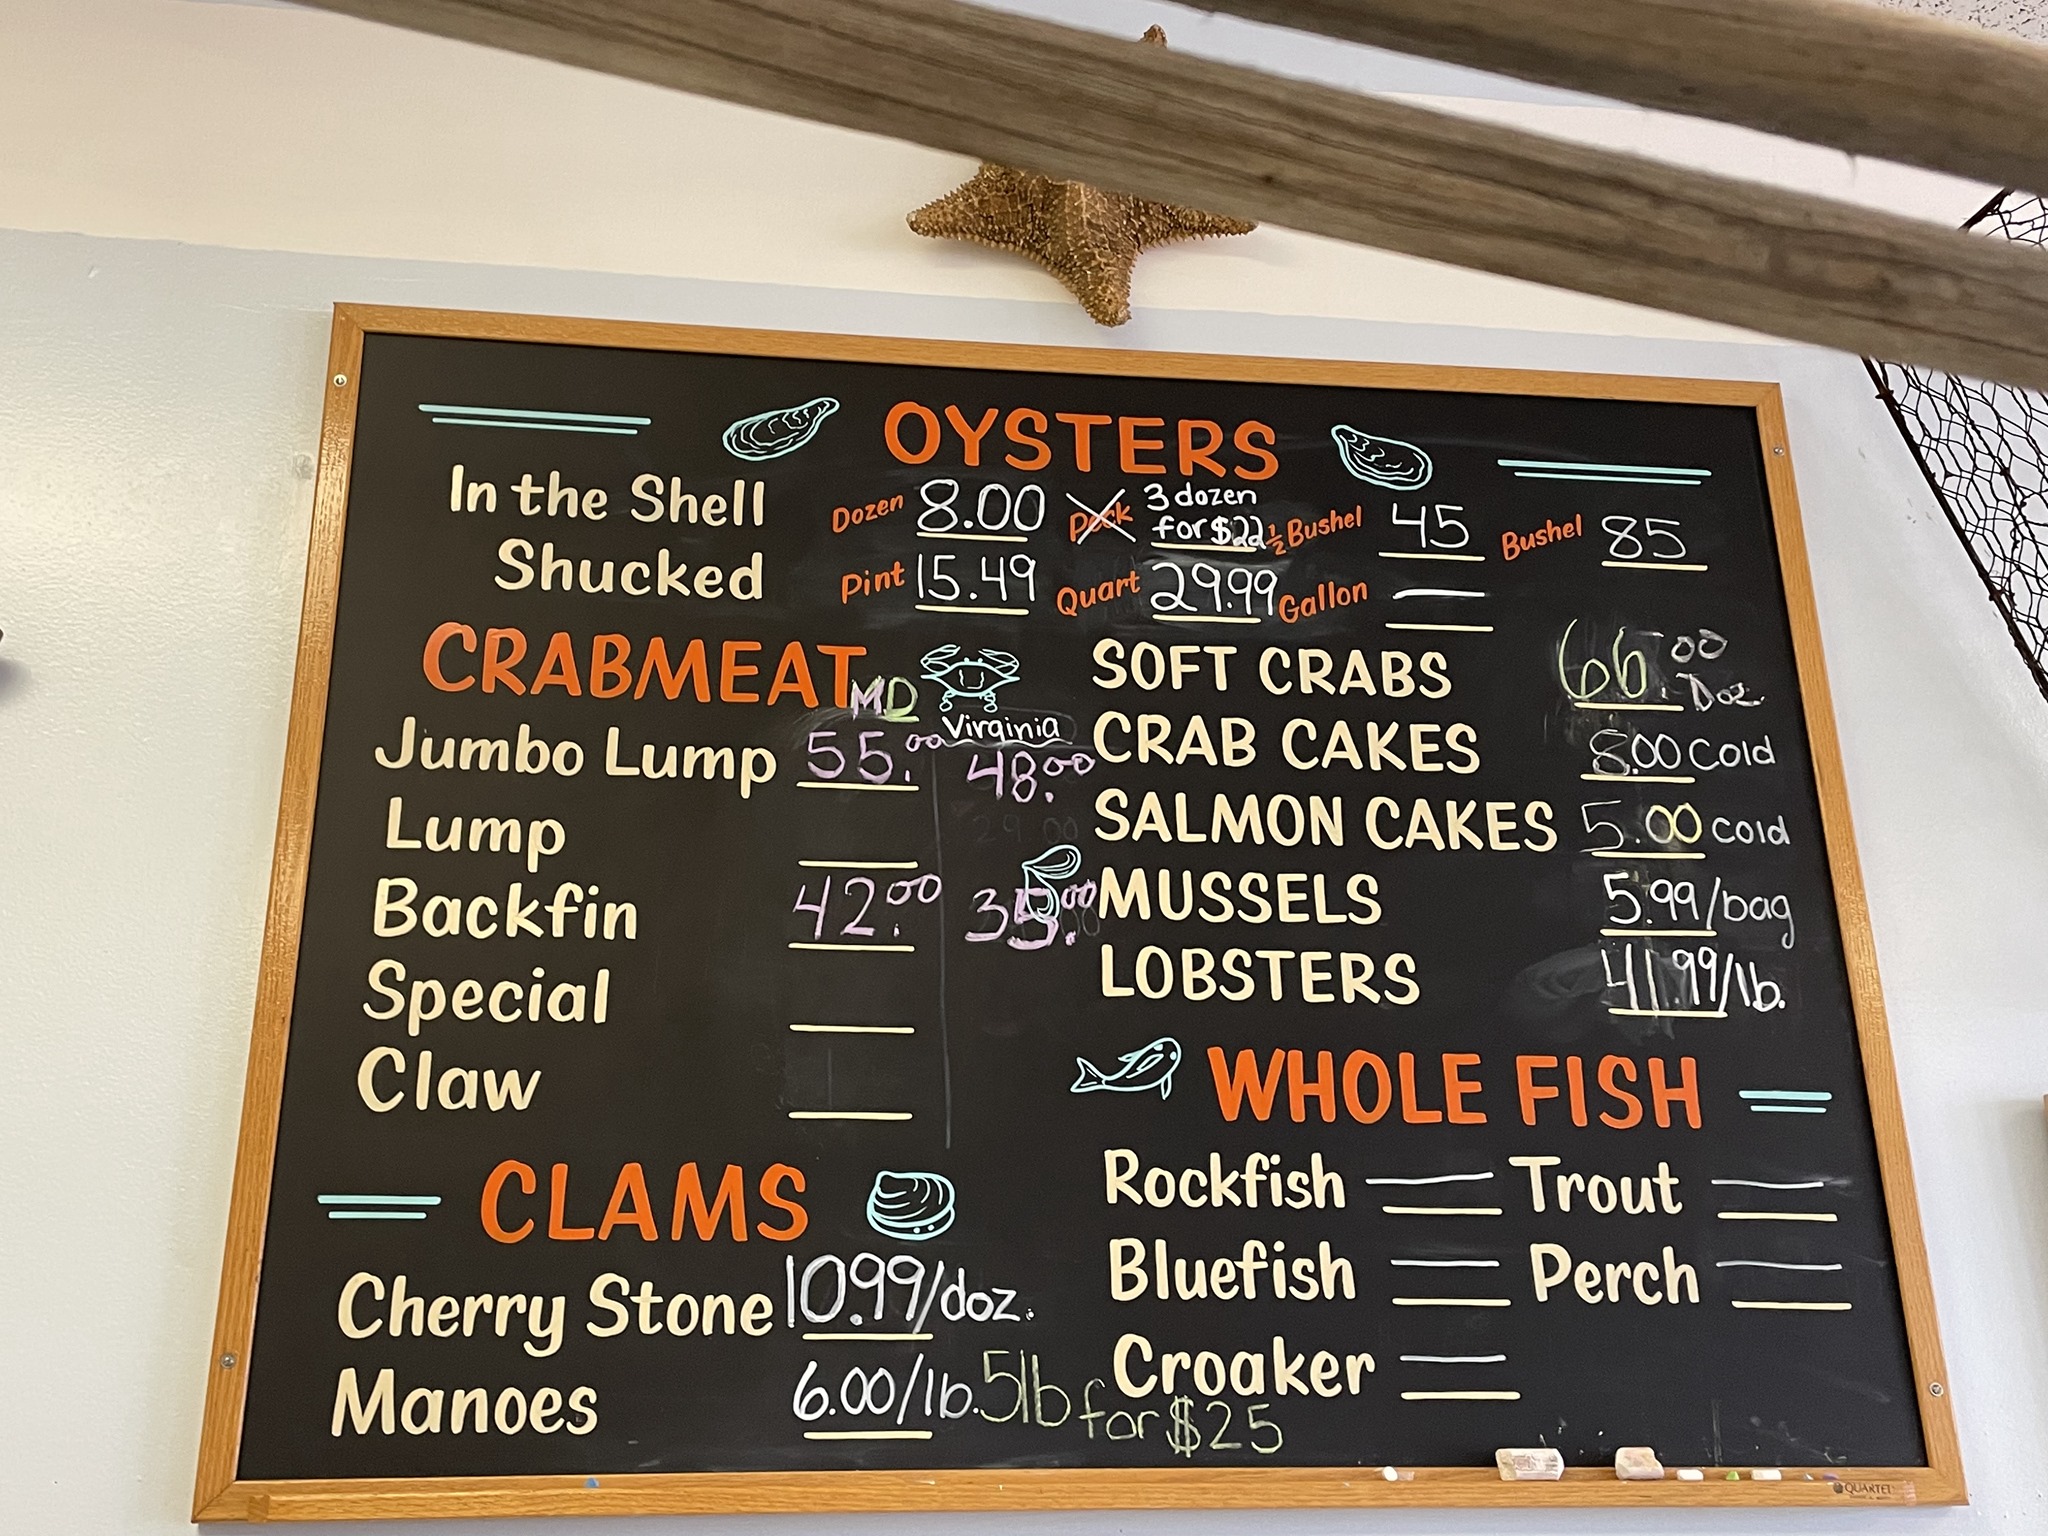 OYSTERS
In the Shell Dozen 8.00 Peck 3 dozen for $22 ½ Bushel 45 Bushel 85
Shucked Pint 15.49 Quart 29.99 Gallon
CRABMEAT MD Virginia
Jumbo Lump 55.00 48.00
Lump
Backfin 42.00 35.00
Special
Claw
CLAMS
Cherry Stone 10.99/doz.
Manoes 6.00/lb. 5lb for $25
SOFT CRABS 66.00 Doz.
CRAB CAKES 8.00 Cold
SALMON CAKES 5.00 Cold
MUSSELS 5.99/bag
LOBSTERS 41.99/lb.
WHOLE FISH
Rockfish Trout
Bluefish Perch
Croaker
QUARTET